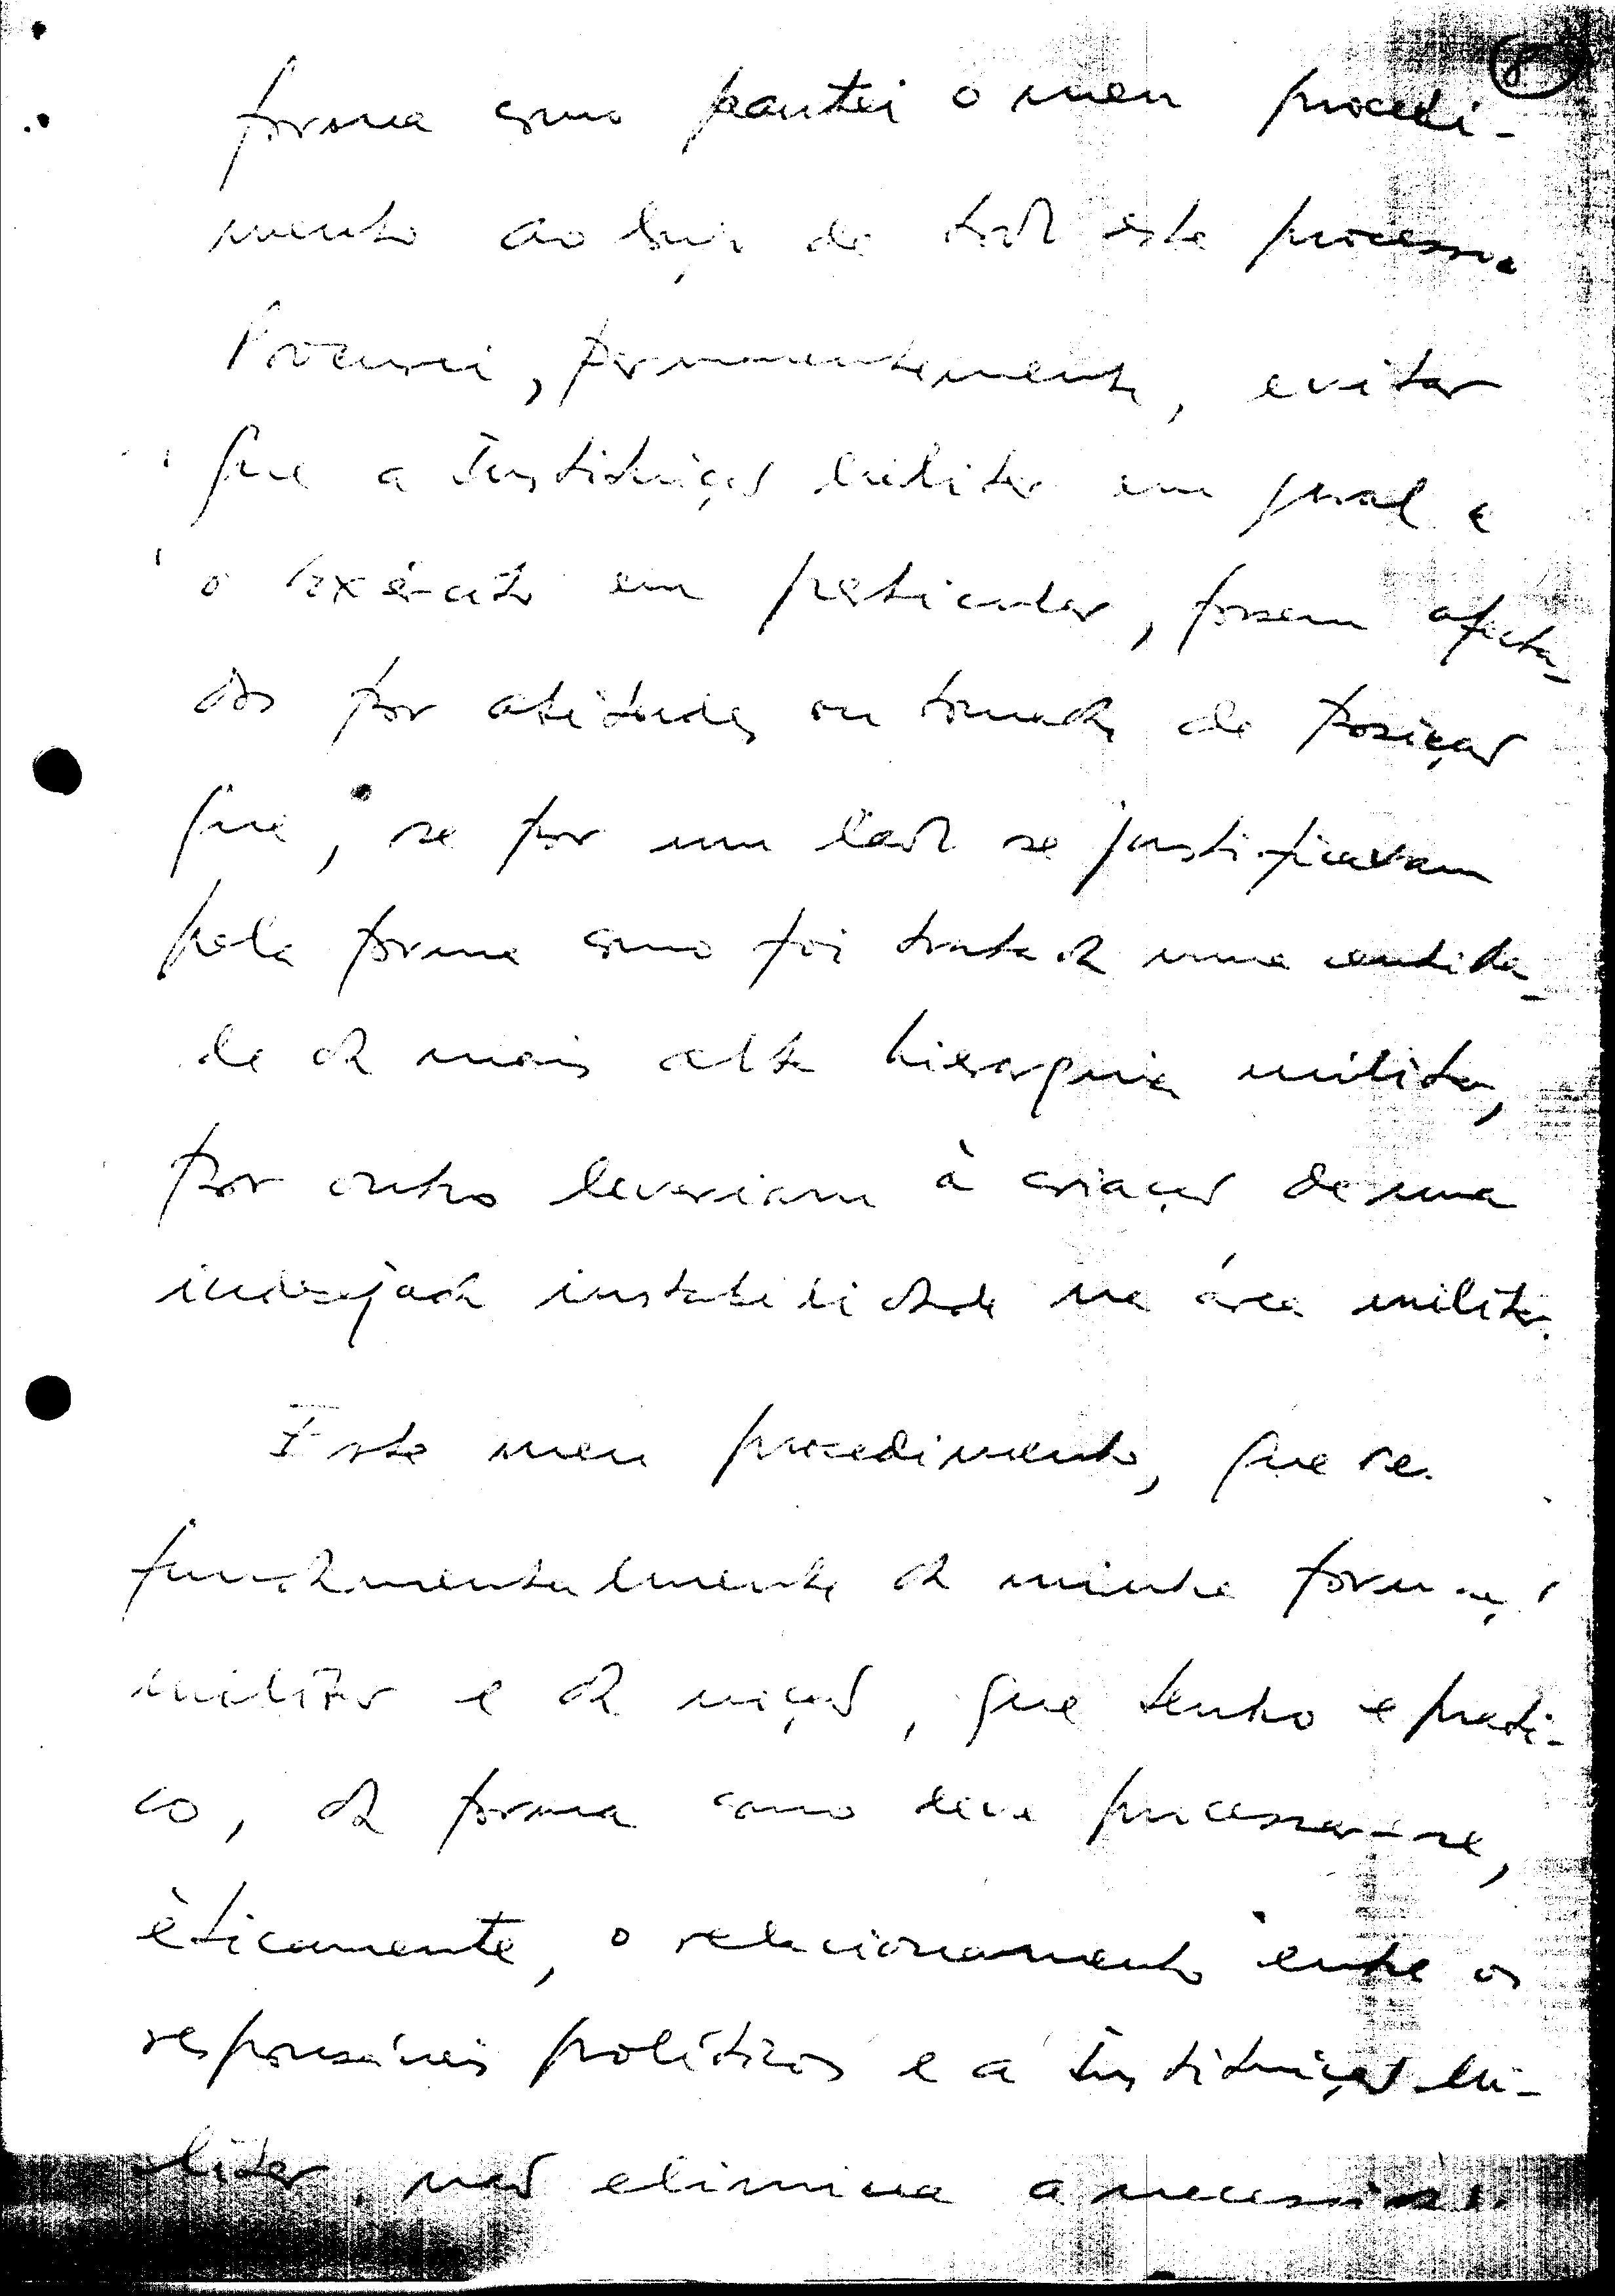 8
forma como pautei o meu procedi-
mento ao longo de todo este processo.
Procurei, permanentemente, evitar
que a Instituição Militar em geral e
o Exército em particular, fossem afecta-
dos por atitudes ou tomadas de posição
que, se por um lado se justificavam
pela forma como foi tratada uma entida-
de da mais alta hierarquia militar,
por outro levariam à criação de uma
indesejada instabilidade na área militar.
Este meu procedimento, que re.
fundamentalmente da minha formaç
militar e da noção, que tenho e prati-
co, da forma como deve processar-se,
èticamente, o relacionamento entre os
responsáveis políticos e a Instituição Mi-
litar, não elimina a necessida